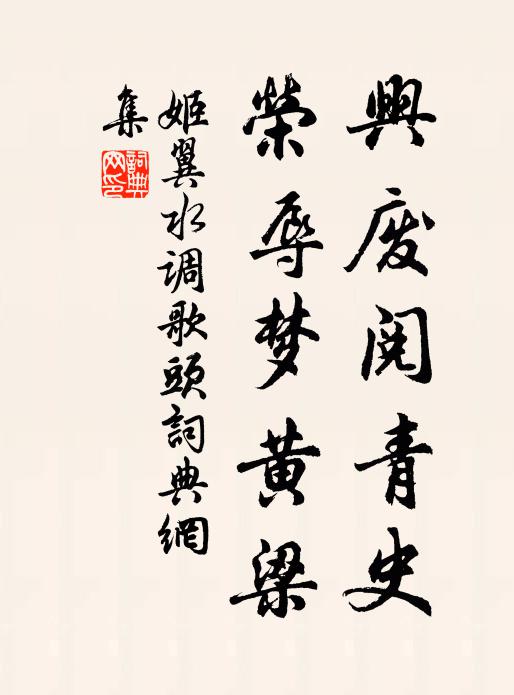 興废阅青史
榮辱梦黄梁
姬翼水调歌頭詞典網
集
詞典
网印